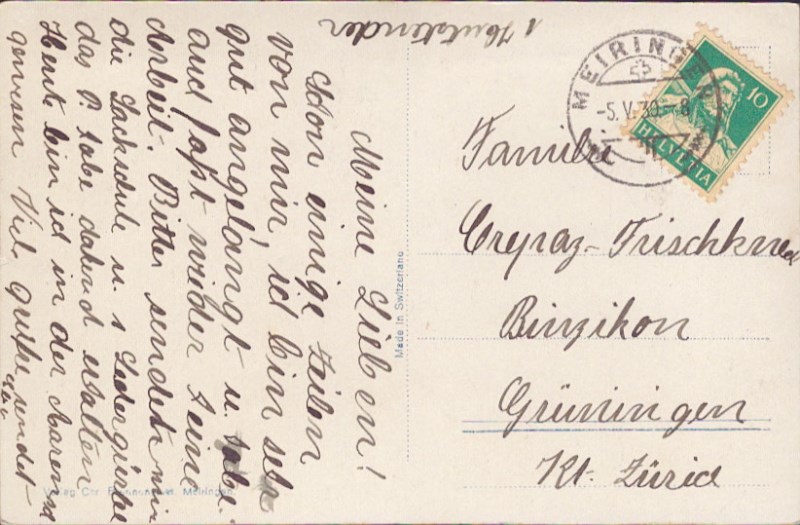 Meine Lieben!
Schon einige Zeilen
von mir, ich bin sehr
gut angelangt u. habe
auch schon wieder seine
Arbeit. Bitte sendet mir
die Lackschuhe u. 1 Ledergürtel
das P. habe dahend erhalten
Heute bin ich in der Aaren
gewesen Viel Grüsse sendet
Made in Switzerland
MEIRINGEN
-5.V.30.-8
10
HELVETIA
Familie
Creyraz-Frischknec
Binzikon
Grüningen
Kt. Zürich
Verlag Chr. Meiringen.